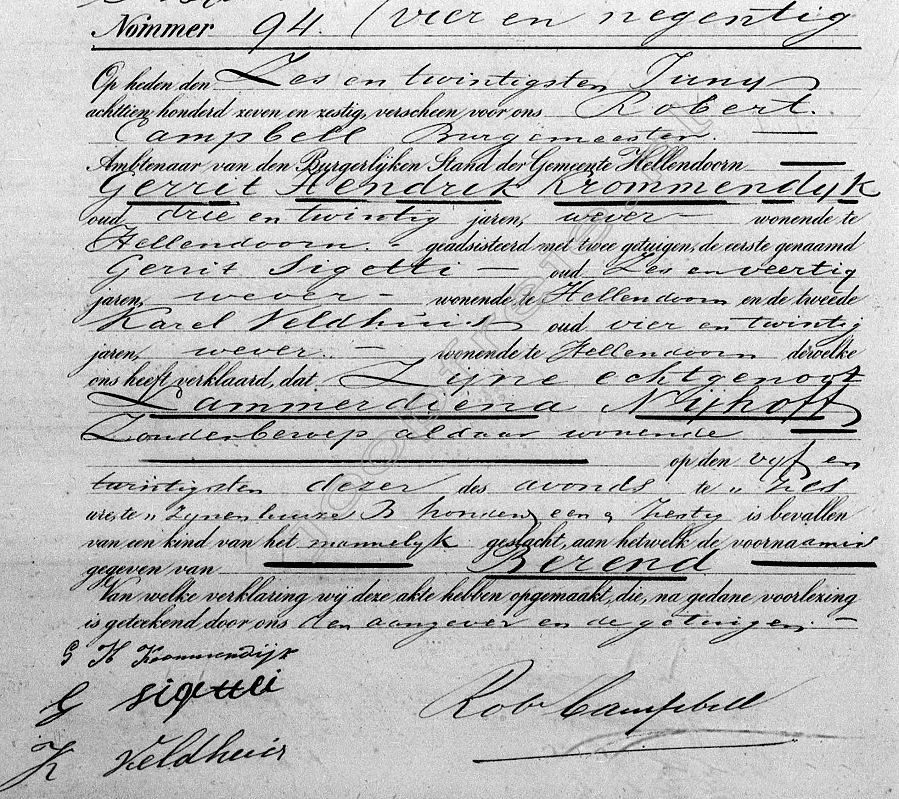 Nommer 94. (vier en negentig
Op heden den Zes en twintigsten Juny
achttien honderd zeven en zestig, verscheen voor ons Robert
Campbell Burgemeester
Ambtenaar van den Burgerlijken Stand der Gemeente Hellendoorn
Gerrit Hendrik Krommendyk
oud drie en twintig jaren, wever wonende te
Hellendoorn geadsisteerd met twee getuigen, de eerste genaamd
Gerrit Sigetti oud Zes en veertig
jaren, wever wonende te Hellendoorn en de tweede
Karel Veldhuis oud vier en twintig
jaren, wever wonende te Hellendoorn derwelke
ons heeft verklaard, dat Zyne echtgenoot
Lammerdiena Nijhoff
Zonder beroep aldaar wonende
op den vyf en
twintigsten dezer des avonds te Zes
ure te Zynen huize B honderd een & Zestig is bevallen
van een kind van het mannelyk geslacht, aan hetwelk de voornaam is
gegeven van Berend
Van welke verklaring wij deze akte hebben opgemaakt, die, na gedane voorlezing
is geteekend door ons den aangever en de getuigen.
G H Krommendijk
G Sigetti
Rob Campbell
K Veldhuis